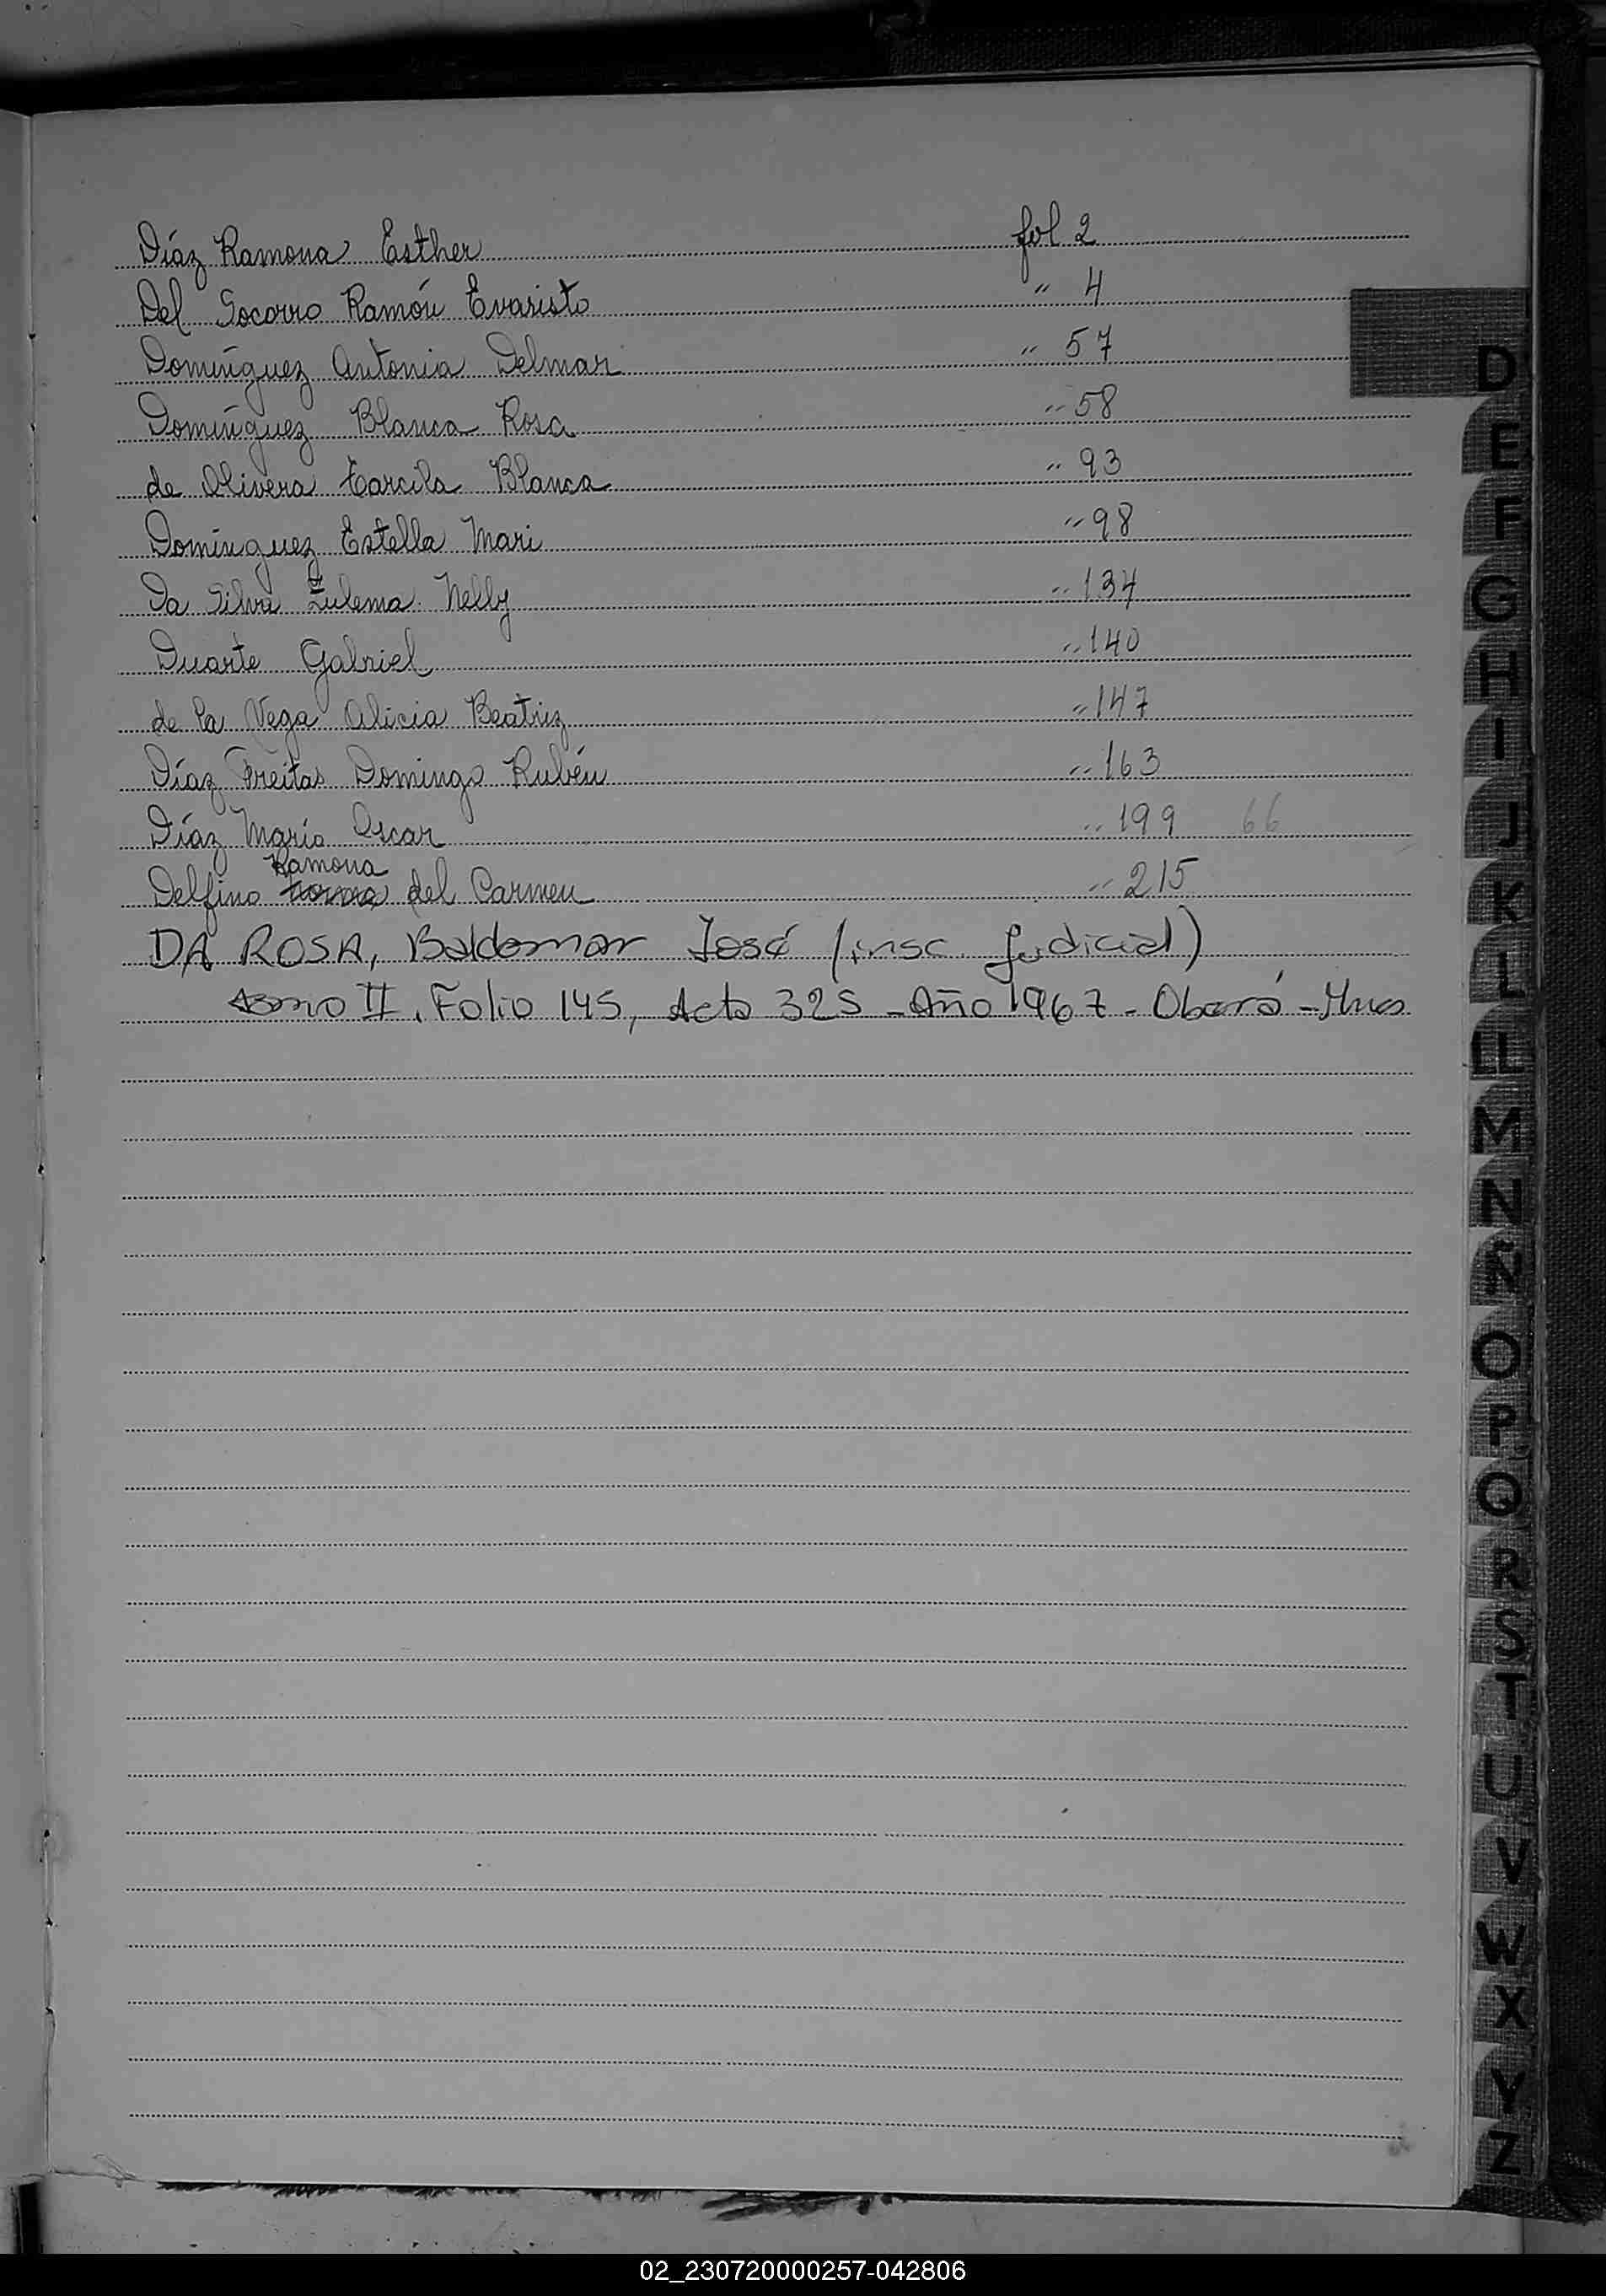 Díaz Ramona Esther fol 2
Del Socorro Ramón Evaristo " 4
Domínguez Antonia Delmar " 57
Domínguez Blanca Rosa " 58
de Olivera Tarcila Blanca " 93
Domínguez Estella Mari " 98
Da Silva Zulema Nelly " 134
Duarte Gabriel " 140
de la Vega Alicia Beatriz " 147
Díaz Freitas Domingo Rubén " 163
Díaz Mario Oscar " 199 66
Ramona
Delfino Norma del Carmen " 215
DA ROSA, Baldomar José (insc. Judicial)
Tomo II, Folio 145, Acta 325 - Año 1967 - Oberá - Mnes
D
E
F
G
H
I
J
K
L
LL
M
N
Ñ
O
P
Q
R
S
T
U
V
W
X
Y
Z
02_230720000257-042806